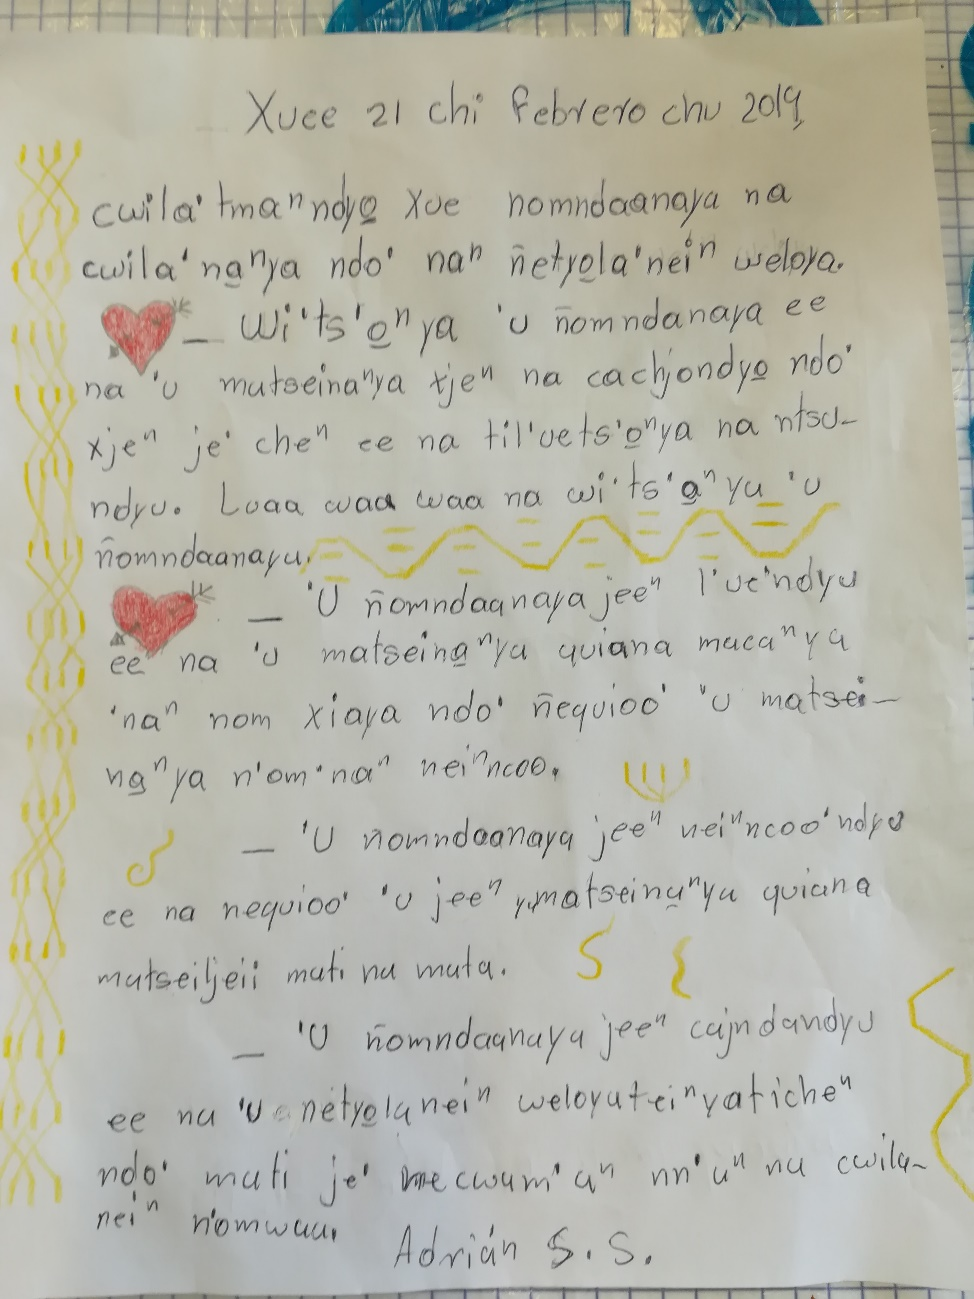 Xuee 21 chi febrero chu 2019
cwila' tmaⁿndyo̲ xue nomndaanaya na
cwila' na̲ⁿya ndo' naⁿ ñetyo̲la'neiⁿ weloya.
_ Wi'ts'o̲ⁿya 'u ñomndanaya ee
na 'u matseinaⁿya xjeⁿ na cachjondyo̲ ndo'
xjeⁿ je' cheⁿ ee na til'uets'o̲ⁿya na ntsu-
ndyu. Luaa waa waa na wi'ts'a̲ⁿyu 'u
ñomndaanayu.
_ 'U ñomndaanaya jeeⁿ l'ue'ndyu
ee na 'u matseina̲ⁿya quiana macaⁿya
'naⁿ nom xiaya ndo' ñequioo' 'u matsei-
na̲ⁿya n'om'naⁿ neiⁿncoo.
_ 'U ñomndaanaya jeeⁿ neiⁿncoo'ndyu
ee na nequioo' 'u jeeⁿ matseina̲ⁿya quiana
matseiljeii mati na mata.
_ 'U ñomndaanaya jeeⁿ cajndandyu
ee na 'u netyo̲laneiⁿ weloyateiⁿyaticheⁿ
ndo' mati je' mecwam'aⁿ nn'aⁿ na cwila-
neiⁿ n'omwaa.
Adrián S. S.